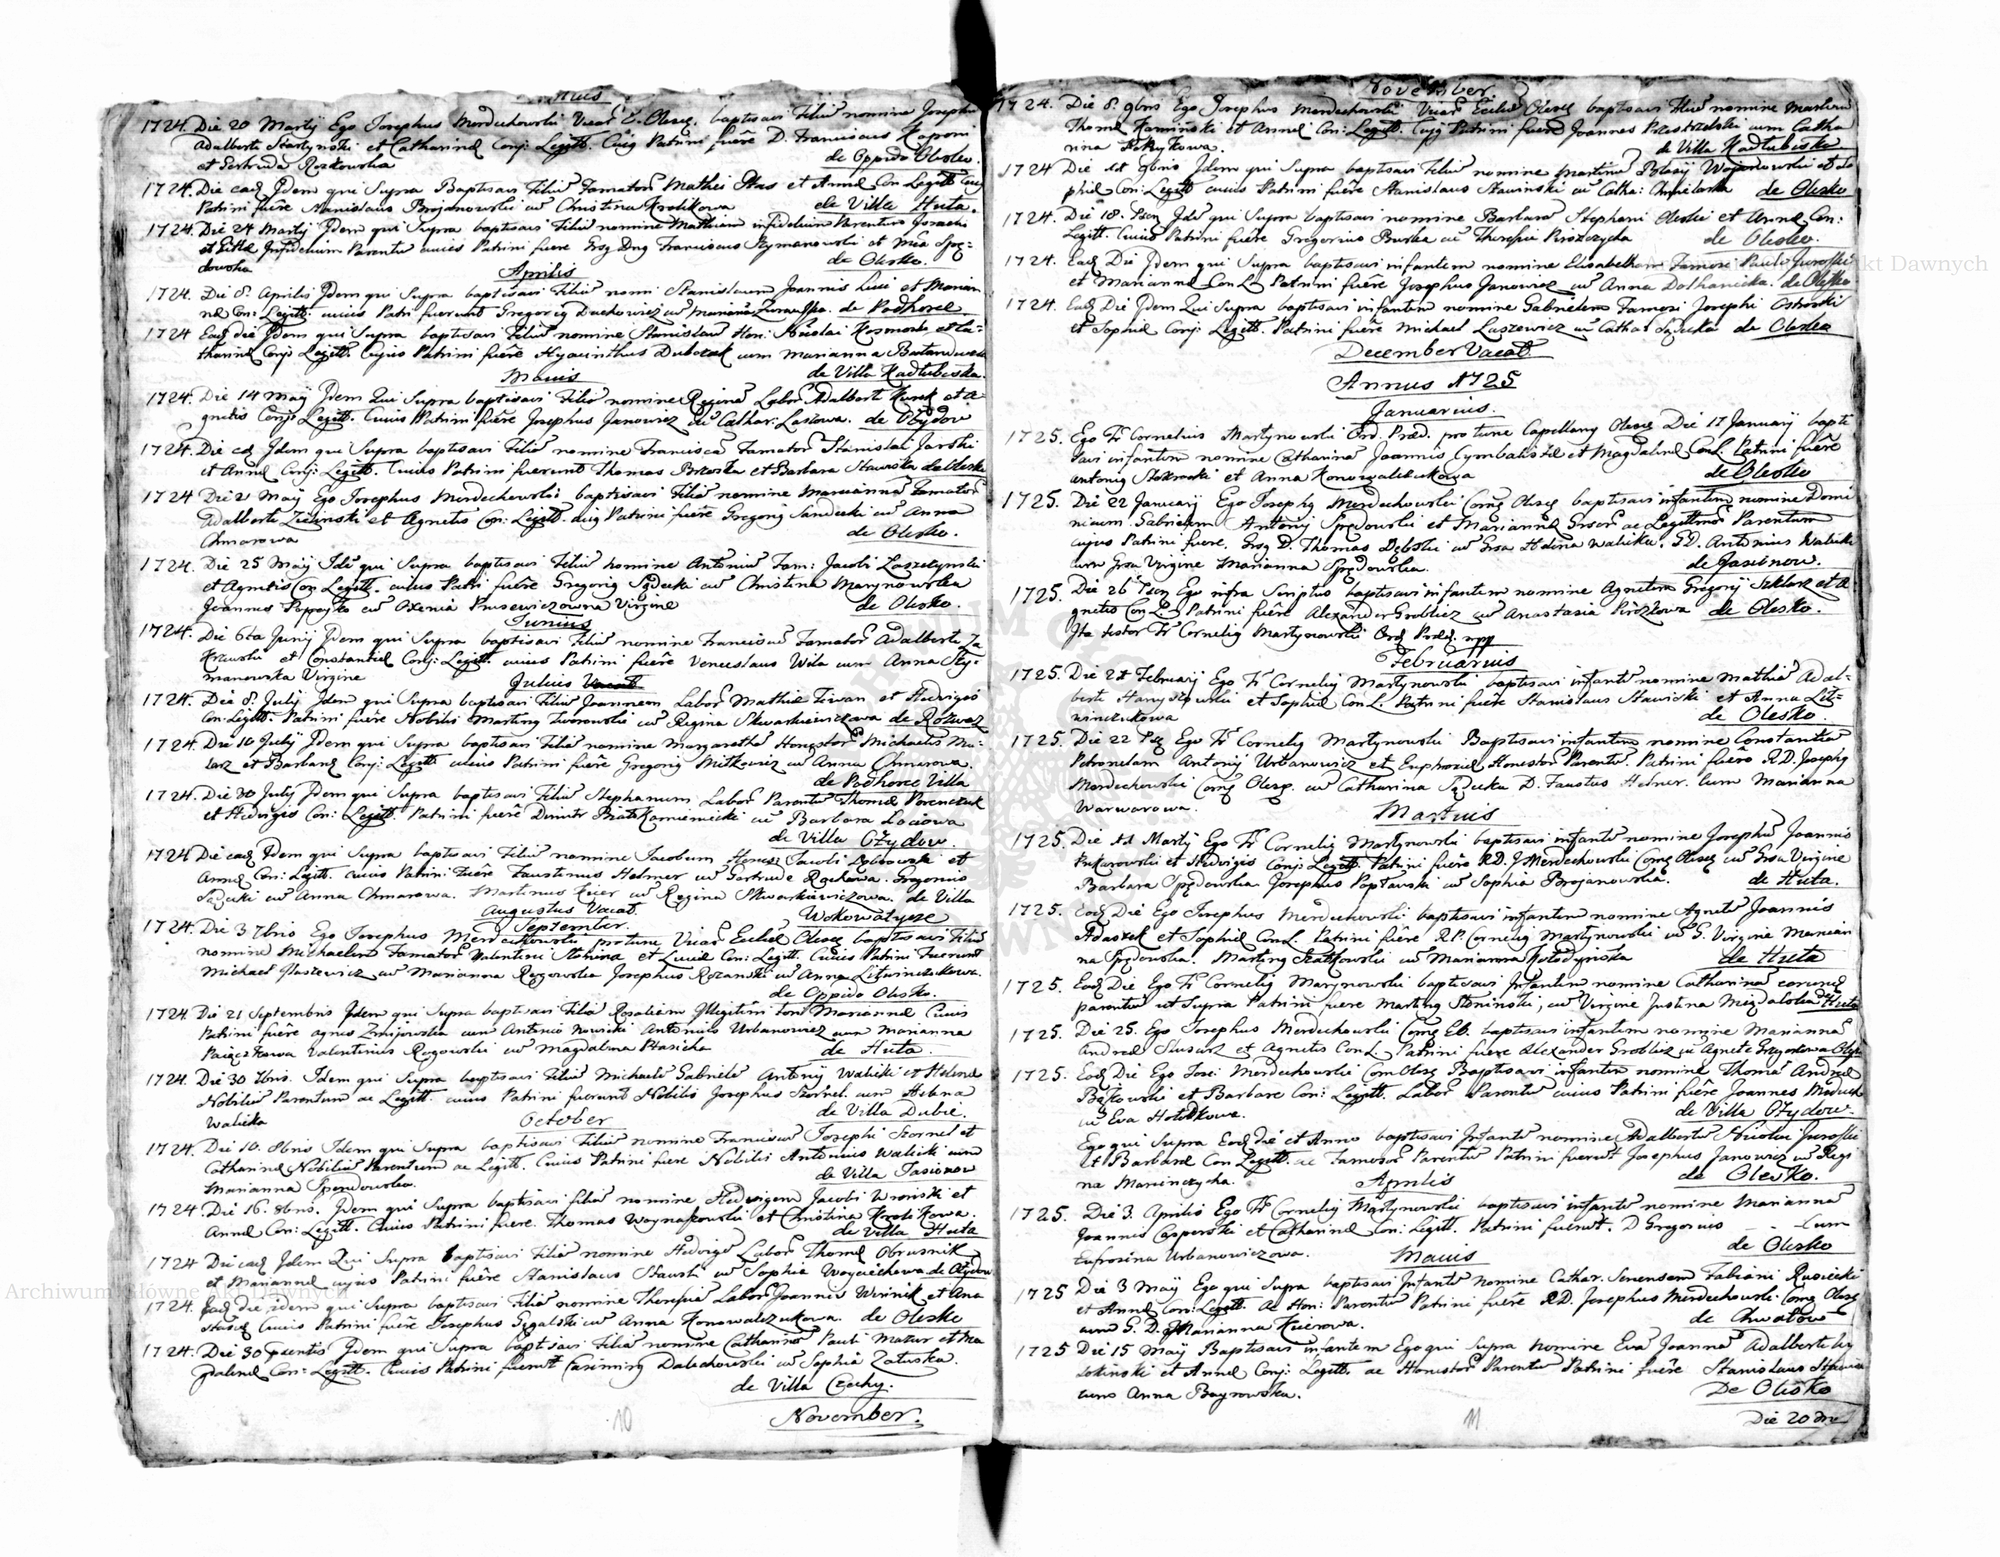 1724. Die 20 Martij Ego Josephus Merdechowski Vicar E. Olesc. baptisavi Filiu nomine Josephu
Adalberti Startynski et Catharinæ Conj: Legitt. Cuig Patrini fuêre D. Franciscus Kaproni
et Gertrudis Rozkowska de Oppido Olesko.
1724. Die eadē Jdem qui Supra Baptisavi Filiū Famator Mathei Stas et Annæ Con Legitt Cuig
Patrini fuêre Stanislaus Brojanowski cū Christina Krolikowa de Villa Huta.
1724. Die 24 Martij Jdem qui Supra baptisavi Filiū nomine Mathiam infidelium Parentum
Infidelium Parentū cuius Patrini fuere Grsg Dng Franciscus Szymanowski et
dowska de Olesko.
Aprilis
1724. Die 8. Aprilis Jdem qui Supra baptisavi Filiū nomi Stanislaum Joannis et Marian
næ Con: Legitt. cuius Patri fuerunt Gregorig Duchowicz cū Mariana de Podhorce
1724 Eadē die Jdem qui Supra baptisavi Filiū nomine Stanislaū Hon: Nicolai et Ca-
tharinæ Conj Legitt. Cujus Patrini fuêre Hyacinthus Dubczak cum Marianna
Maius de Villa Kadlubiska.
1724. Die 14 Maij Jdem Qui Supra baptisavi Filiā nomine Reginā Labor. Adalberti Kurek et A
gnetis Conjs Legitt. Cuius Patrini fuêre Josephus Janowicz cū Cathar: Lasowa. de Ożydów
1724. Die eā Jdem qui Supra baptisavi Filiā nomine Francisca Famator Stanislai Jarski
et Annæ Conj: Legitt. Cuius Patrini fuerunt Thomas Brzeski et Barbara Stawska de Olesko
1724 Die 21 Maij Ego Josephus Merdechowski baptisavi Filiā nomine Mariannā Famator
Adalberti Zielinski et Agnetis Con: Legitt. cuig Patrini fuêre Gregorig Sandecki cū Anna
Chmarowa de Olesko.
1724. Die 25 Maij Idē qui Supra baptisavi Filiū nomine Antoniū Fam: Jacobi Laszczynski
et Agnetis Con Legitt. cuius Patri fuêre Gregorig Sądecki cū Christina Marynowska
Joannes Popeyko cū Oxenia Prusewiczowna Virgine de Olesko.
Junius
1724. Die 6ta Junij Jdem qui Supra baptisavi Filiū nomine Franciscū Famator Adalberti Za
krzewski et Constantiæ Conj: Legitt. cuius Patrini fuêre Venceslaus Wila cum Anna Szy-
manowska Virgine Julius Vacat
1724. Die 8. Julij Jdem qui Supra baptisavi Filiū Joannem Labor Mathiæ Tiwan et Hedvigis
Con: Legitt. Patrini fuêre Nobilis Marting Zworowski cū Regina Skwarkiewiczowa de Rozwaz
1724. Die 16 Julij Jdem qui Supra baptisavi Filiā nomine Margarethā Honestor Michaelis Mu-
larz et Barbaræ Conj: Legitt cuius Patrini fuêre Gregorig Mitkowicz cū Anna Chmarowa.
de Podhorce Villa
1724. Die 30 Julij Jdem qui Supra baptisavi Filiū Stephanum Labor Parentū Thomæ Porenczuk
et Hedvigis Con: Legitt. Patrini fuêre Dimitr Białkamieniecki cū Barbara Laciowa
de Villa Ożydow.
1724 Die eadē Jdem qui Supra baptisavi Filiū nomine Jacobum Hones: Jacobi et
Annæ Con: Legitt. cuius Patrini Fuêre Faustinus Helmer cū Gertrude Rackowa. Gregorius
Sądecki cū Anna Chmarowa. Martinus Kiier cū Regina Skwarkiewiczowa. de Villa
Augustus Vacat. Wekowatyce
September.
1724. Die 3 7bris Ego Josephus Merdechowski protunc Vicar Eccliæ Olesc baptisavi Filiū
nomine Michaelem Famator Valentini Stahina et Luciæ Con: Legitt. Cuius Patrini Fuerunt
Michael Staszewicz cū Marianna Rogowska Josephus Rozanski cū Anna Litwinczukowa.
de Oppido Olesko.
1724 Die 21 Septembris Jdem qui Supra baptisavi Filiā Rosaliam Illegitim tori Mariannæ Cuius
Patrini fuêre Agnes Zmijowska cum Antonio Nowicki Antonius Urbanowicz cum Marianna
Paiączkowa Valentinus Rogowski cū Magdalena Stasicha de Huta.
1724. Die 30 7bris. Idem qui Supra baptisavi Filiū Michaelē Gabrielē Antonij Walicki et Helenæ
Nobiliū Parentum ac Legitt. cuius Patrini fuerunt Nobilis Josephus Szornel cum Helena
Walicka October de Villa Dubie.
1724. Die 10. 8bris Idem qui Supra baptisavi Filiū nomine Franciscū Josephi Szornel et
Catharinæ Nobiliū Parentum ac Legitt. Cuius Patrini fuere Nobilis Antonius Walicki cum
Marianna Spendowska. de Villa Jasionow
1724. Die 16. 8bris. Jdem qui Supra baptisavi filiā nomine Hedvigem Jacobi Wrosiski et
Annæ Con: Legitt. Cuius Patrini fuere. Thomas Woynaszowski et Christina Krolikowa.
de Villa Huta
1724 Die eadē Jdem Qui Supra baptisavi Filiā nomine Hedvigē Labor Thomæ Obrusnik
et Mariannæ cujus Patrini fuêre Stanislaus Stauski cū Sophia Woyciechowa de Ożydow
1724. Eadē die idem qui Supra baptisavi Filiā nomine Theresiā Labor Joannis Woznik et Ana
stasiæ Cuius Patrini fuêre Josephus Segalski cū Anna Konowalczukowa. de Olesko
1724. Die 30 Jdem qui Supra baptisavi Filiā nomine Catharinā Pauli Mazur et Ma
gdalenæ Con: Legitt. Cuius Patrini fuerunt Casimirg Dalechowski cū Sophia Zaluska.
de Villa Czechy.
10
November.
November.
1724. Die 8. 9bris Ego Josephus Merdechowski Vicar Eccliæ Olesc baptisavi Filiū nomine Martinū
Thomæ Kaminski et Annæ Con: Legitt. Cujg Patrini fuêre Joannes Przestrzelski cum Catha
rina de Villa Kadlubiska
1724 Die 11 9bris Idem qui Supra baptisavi Filiū nomine Martinū Blasij Woyanowski et So
phiæ Con: Legitt cuius Patrini fuêre Stanislaus Stawinski cū Catha: Chmielarka de Olesko
1724. Die 18. Idē qui Supra baptisavi nomine Barbarā Stephani Oleski et Annæ Con:
Legitt. Cuius Patrini fuêre Gregorius Bruska cū Theresia Pirozczycha de Olesko.
1724. Eadē Die Jdem qui Supra baptisavi infantem nomine Elisabetham Famosi Pauli Juroski
et Mariannæ Con L Patrini fuêre Josephus Janowicz cū Anna Dolhanicka. de Olesko
1724. Eadē Die Jdem Qui Supra baptisavi infantem nomine Gabrielem Famosi Josephi Ostroski
et Sophiæ Conj: Legitt. Patrini fuêre Michael Laszewicz cū Catha: Sądecka de Olesko
December Vacat
Annus 1725
Januarius.
1725. Ego Fr Cornelius Martynowski Ord. Præd. pro tunc Capellang Olesc Die 17 Januarij bapti
savi infantem nomine Catharinā Joannis Cymbalistæ et Magdalenæ Con L. Patrini fuêre
Antonig et Anna Konowalczukowa de Olesko
1725. Die 22 Januarij Ego Josephg Merdechowski Comg Olesc baptisavi infantem nomine Domi
nicum. Gabrielem Antonij Spędowski et Mariannæ Gnsor ac Legitimor Parentum
cujus Patrini fuere. Grsg D. Thomas Dębski cū Grsa Helena Walicka. G.D. Antonius Walicki
cum Grsa Virgine Marianna Spędowska. de Jasionow.
1725. Die 26 Ego infra Scriptus baptisavi infantem nomine Agnetem Gregorij Szklarz et A
gnetis Con L Patrini fuêre Alexander Groblicz cū Anastasia Pirożkowa de Olesko.
Jta testor Fr Cornelig Martynowski Ord Præd. mpp
Februarius
1725. Die 21 Februarij Ego Fr Cornelig Martynowski baptisavi infantē nomine Mathiā Adal-
berti et Sophiæ Con L. Patrini fuêre Stanislaus Stawicki et Anna Lit-
winczukowa de Olesko.
1725. Die 22 Ego Fr Cornelig Martynowski Baptisavi infantem nomine Constantiā
Petronelam Antonij Urbanowicz et Euphrosinæ Honestor Parentū. Patrini fuêre R.D. Josephg
Merdechowski Comg Olesc. cū Catharina Sądecka D. Faustus Helner. cum Marianna
Warwarowa. Martius
1725. Die 11 Martij Ego Fr Cornelig Martynowski baptisavi infantē nomine Josephū Joannis
Pukarowski et Hedvigis Conj Legitt Patrini fuêre R.D. J Merdechowski Comg Olesc cū Grsa Virgine
Barbara Spędowska. Josephus Popławski cū Sophia Brojanowska. de Huta.
1725. Eodē Die Ego Josephus Merdechowski baptisavi infantem nomine Agnetē Joannis
Adaszek et Sophiæ Con L. Patrini fuêre R.P. Cornelig Martynowski cū G. Virgine Marian
na Spędowska. Marting Szatkowski cū Marianna Kołodzynska de Huta
1725. Eodē Die Ego Fr Cornelig Marynowski baptisavi Infantem nomine Catharinā eorundē
parentū ut Supra Patrini fuere Marting Słoninski, cū Virgine Justina Migdalska Huta
1725. Die 25. Ego Josephus Merdechowski Comg E.O. baptisavi infantem nomine Mariannā
Andreæ Slusarz et Agnetis Con L. Patrini fuere Alexander Groblicz cū Agnete Gregorkowa Olesko
1725. Eodē Die Ego Jose: Merdechowski Com Olesc Baptisavi infantem nomine Thomā Andreæ
Bożkowski et Barbaræ Con: Legitt. Labor Parentū cuius Patrini fuêre Joannes
cū Eva Holotkowa. de Villa Ożydow.
Ego qui Supra Eodē die et Anno baptisavi Infantē nomine Adalbertū Nicolai Juroski
et Barbaræ Con Legitt. ac Famosor Parentū Patrini fuerunt Josephus Janowicz cū Regi
na Marinczycha. Aprilis de Olesko.
1725. Die 3. Aprilis Ego Fr Cornelig Martynowski baptisavi infantē nomine Mariannā
Joannis Casperski et Catharinæ Con: Legitt. Patrini fuerunt. D Gregorius - - cum
Eufrosina Urbanowiczowa. Maius de Olesko
1725 Die 3 Maij Ego qui Supra baptisavi Infantē nomine Cathar. Senensem Fabiani Rusiecki
et Annæ Con: Legitt. Ac Hon: Parentū Patrini fuêre R.D. Josephus Merdechowski Comg Olesc
cum G. D. Marianna Kiierowa. de Chwatow
1725 Die 15 Maij Baptisavi infantem Ego qui Supra nomine Evā Joannā Adalberti
Sokinski et Annæ Conj: Legitt. ac Honestor Parentū Patrini fuêre Stanislaus
cum Anna Bagrowska. De Olesko
11
Die 20 Ma
Archiwum Główne Akt Dawnych
Archiwum Główne Akt Dawnych